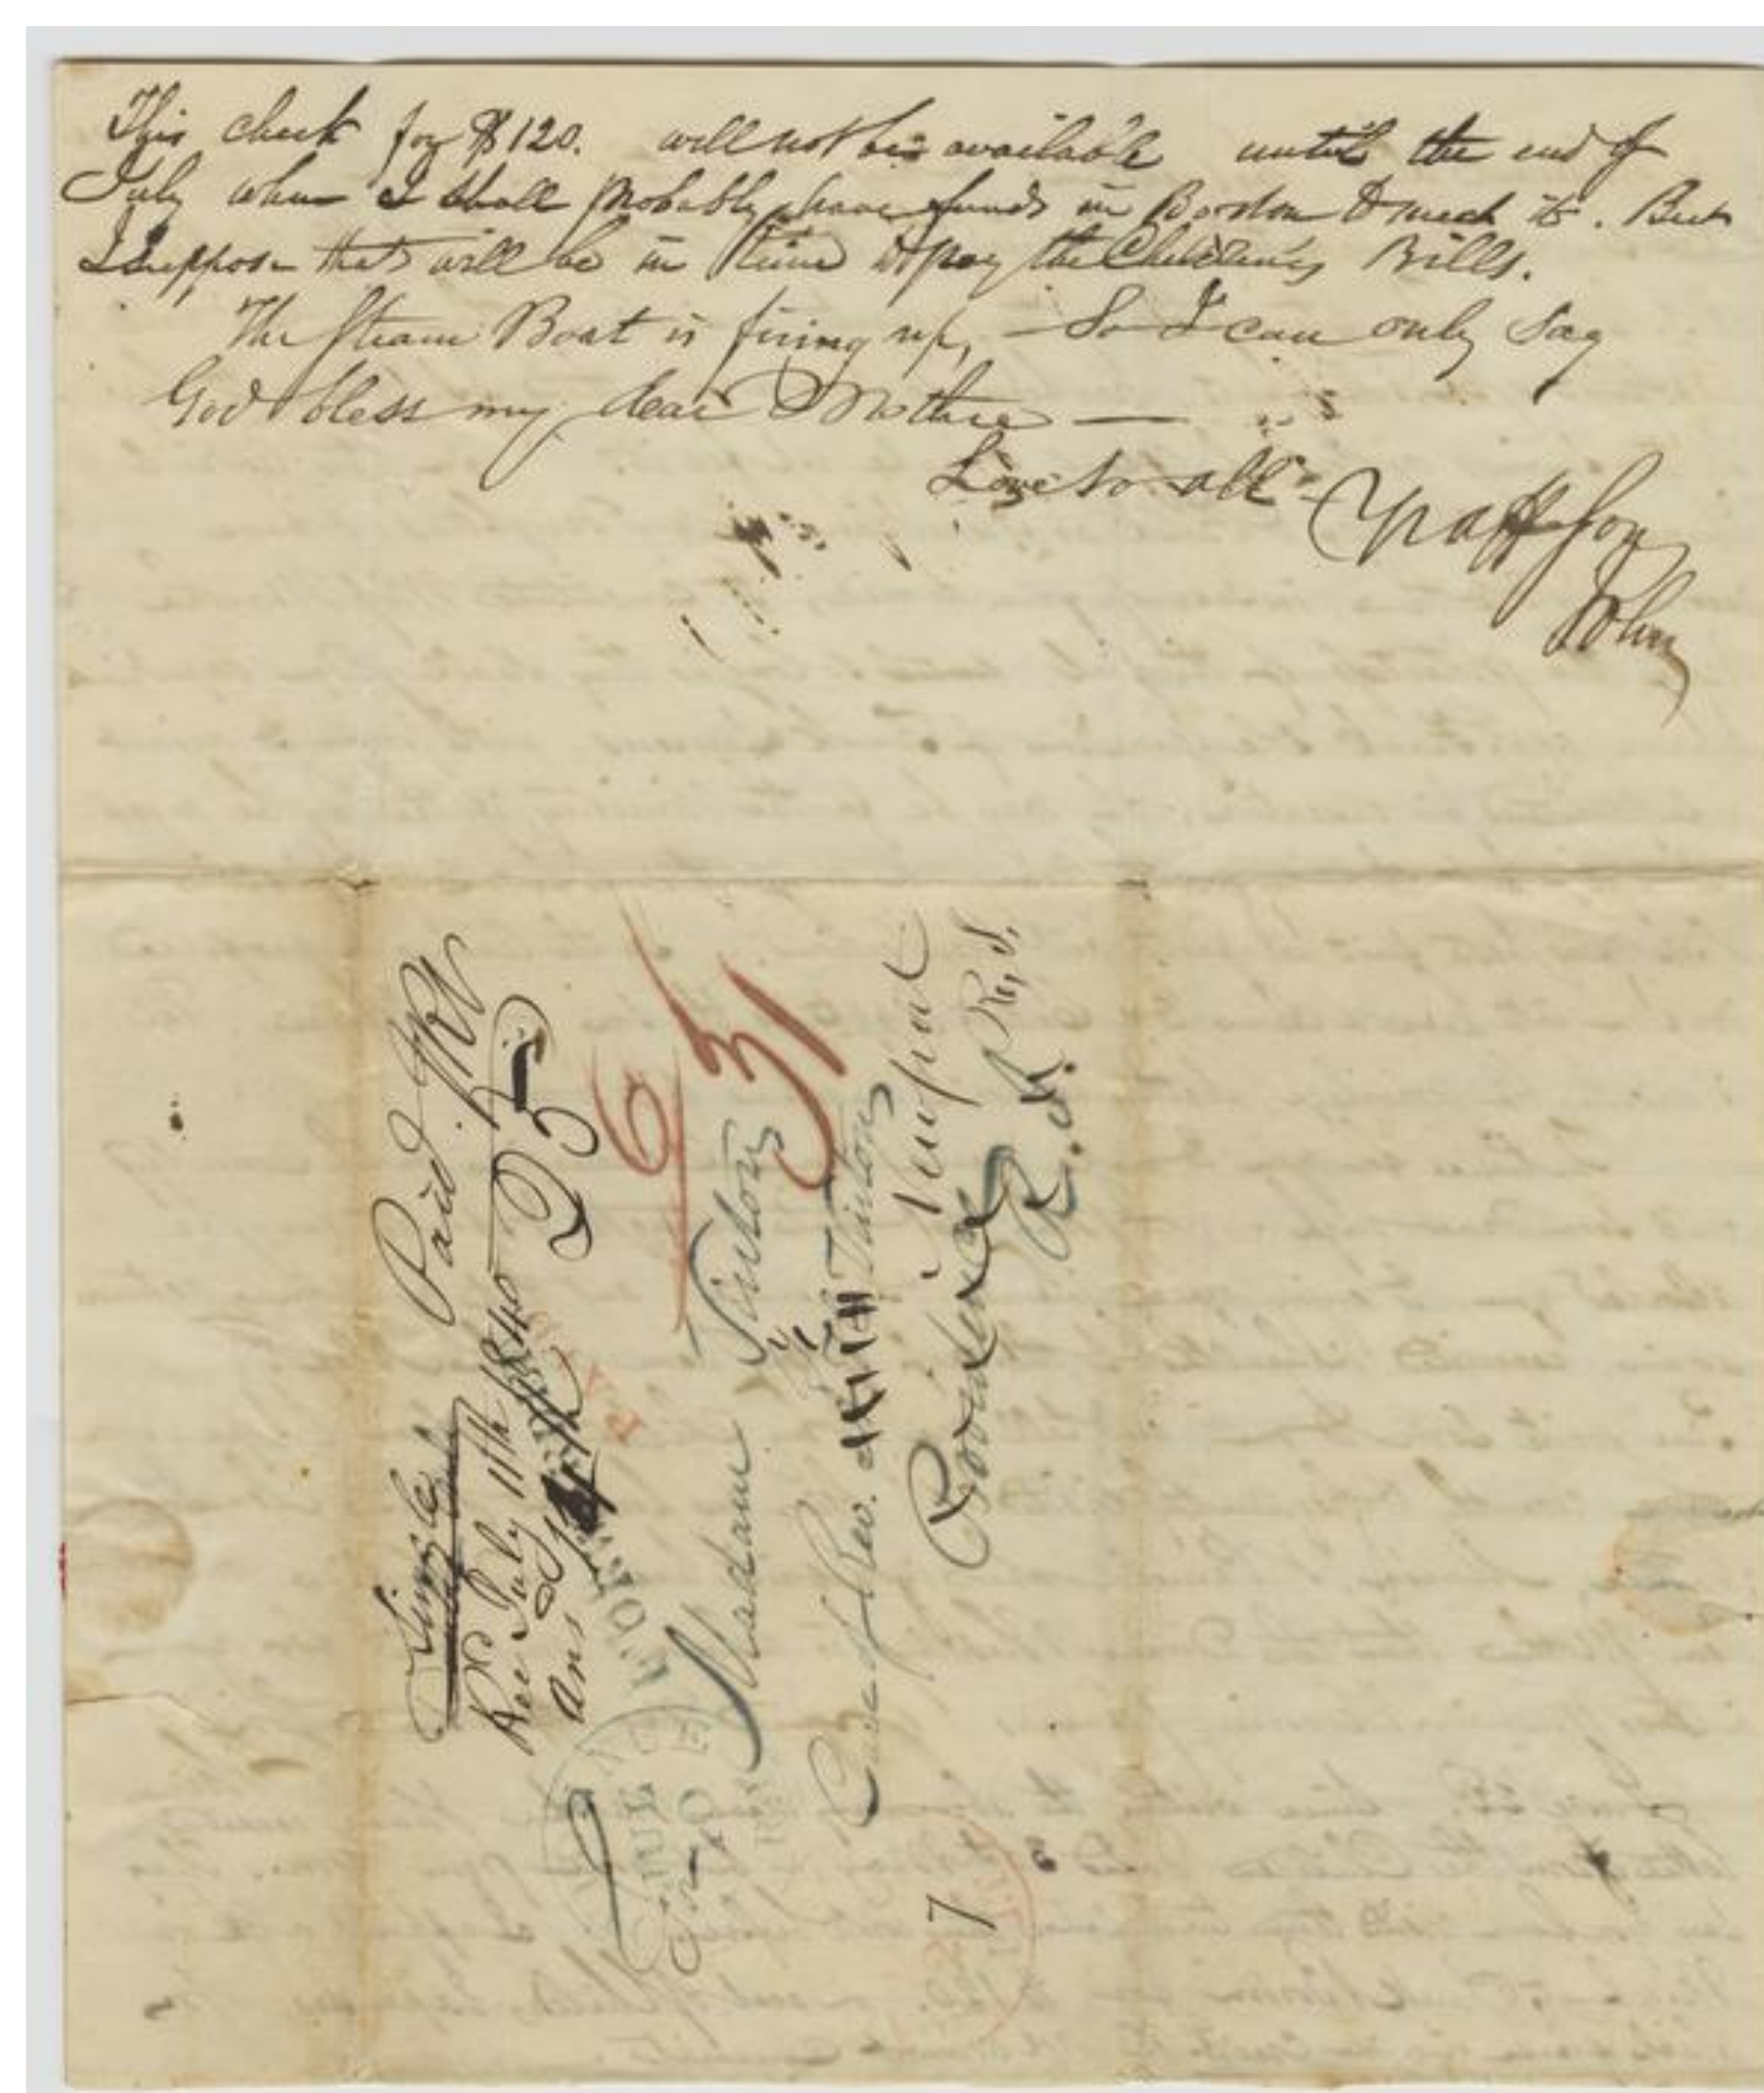 This check for $120. will not be available until the end of
July when I shall probably have funds in Boston to meet it. But
I Suppose that will be in time to pay the Children's Bills.
The Steam Boat is firing up, — So I can only Say
God bless my dear Mother —
Love to all
Yr aff Son
John
Single
Paid
Rec'd July 11th 1840
Ans
25
6
31
Madam Vinton
Care of Rev. Vinton
Newport
Providence
R. I.
7